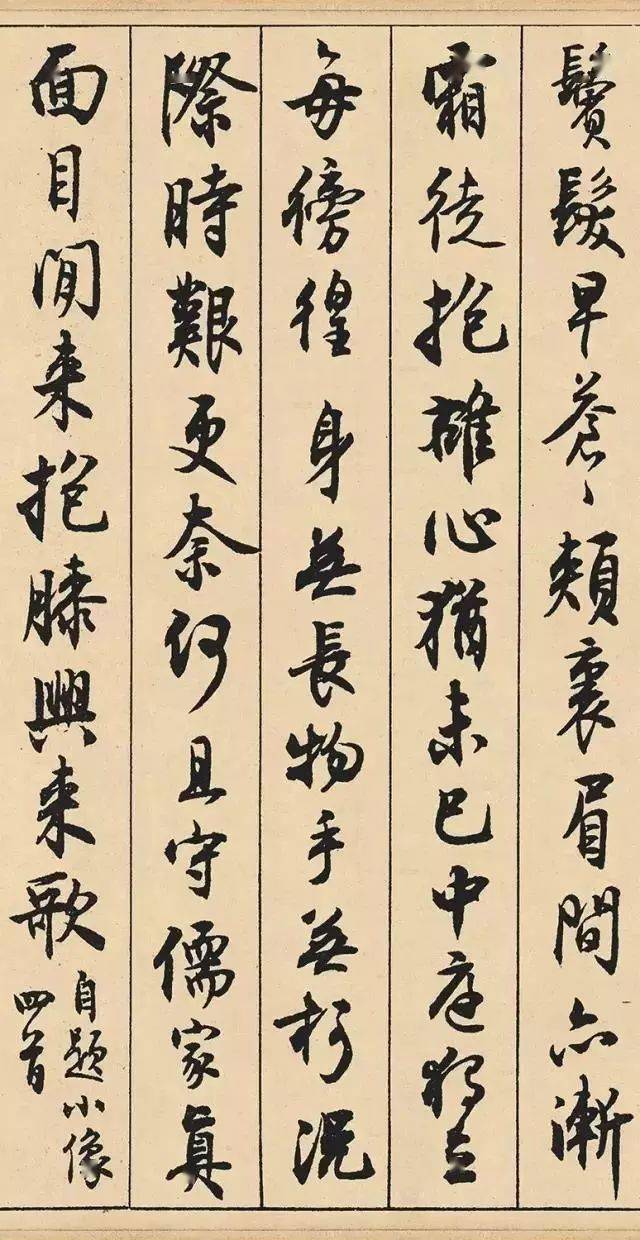 鬢髮早蒼々頰裏眉間亦漸
霜徒抱雄心猶未已中庭獨立
每徬徨 身無長物手無柯況
際時艱更奈何且守儒家真
面目閒来抱膝興来歌
自題小像
四首